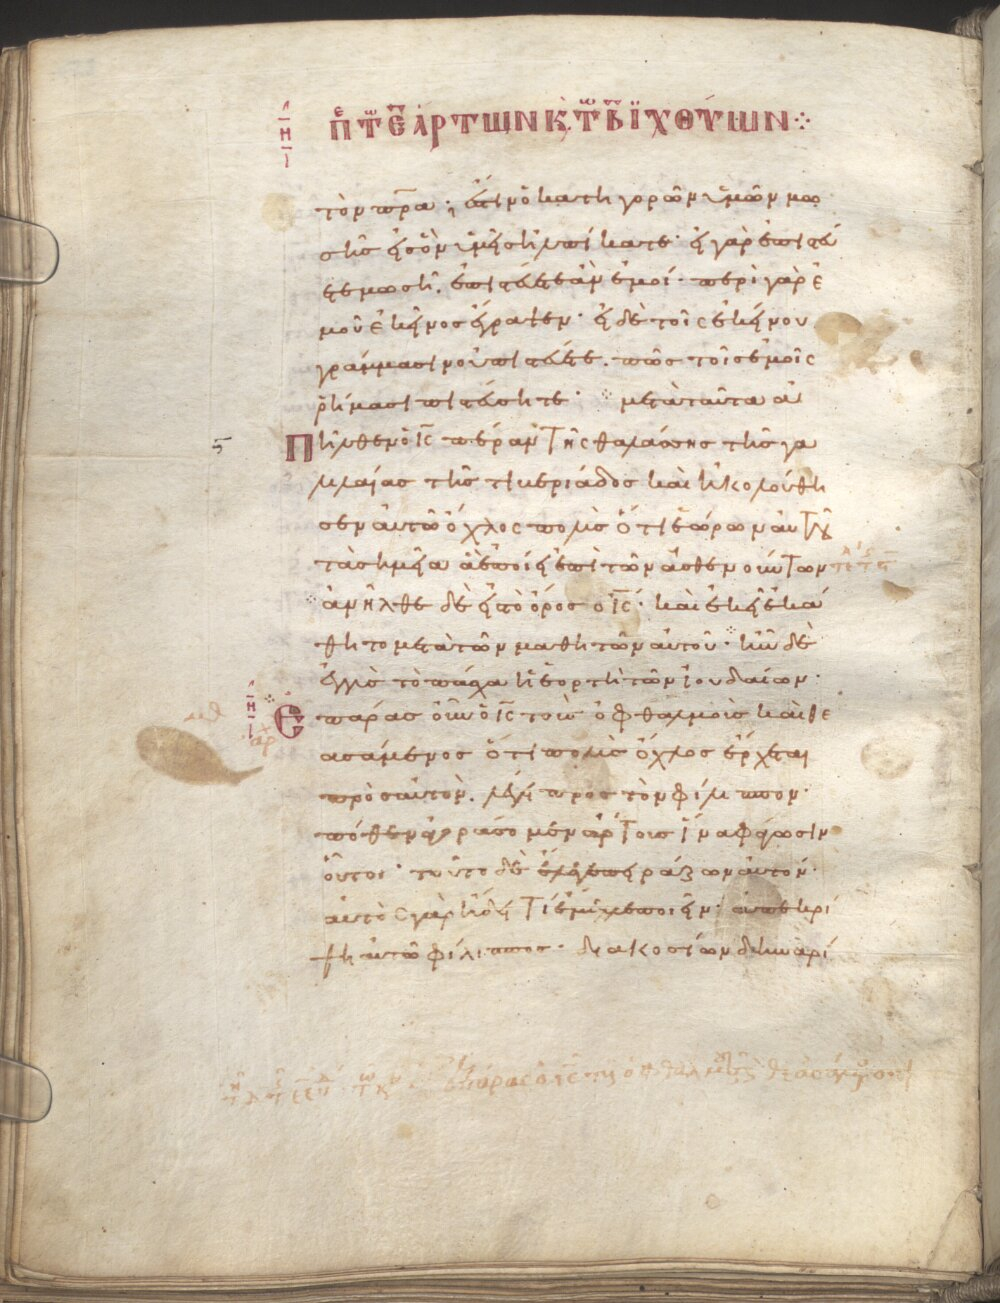 Π τ ε ἄρτων κ τ β ἰχθύων
τὸν πρα· ἔστιν ὁ κατηγορῶν ὑμῶν μω
σῆς εἰς ὃν ὑμεῖς ἠλπίκατε· εἰ γὰρ ἐπιστεύ
ετε μωσῆ, ἐπιστεύετε ἂν ἐμοί· περὶ γὰρ ἐ
μοῦ ἐκεῖνος ἔγραψεν· εἰ δὲ τοῖς ἐκείνου
γράμμασιν οὐ πιστεύετε, πῶς τοῖς ἐμοῖς
ῥήμασι πιστεύσητε· μετὰ ταῦτα ἀ
Πῆλθεν ὁ ις πέραν τῆς θαλάσσης τῆς γα
λιλαίας τῆς τιβεριάδος καὶ ἠκολούθη
σεν αὐτῶ ὄχλος πολὺς ὅτι ἑώρων αὐτοῦ
τὰ σημεῖα ἃ ἐποίει ἐπὶ τῶν ἀσθενούντων
ἀνῆλθε δὲ εἰς τὸ ὄρος ὁ ις· καὶ ἐκεῖ ἐκά
θητο μετὰ τῶν μαθητῶν αὐτοῦ· ἦν δὲ
ἐγγὺς τὸ πάσχα ἡ ἑορτὴ τῶν ἰουδαίων·
Ἐπάρας οὖν ὁ ις τοὺς ὀφθαλμοὺς καὶ θε
ασάμενος ὅτι πολὺς ὄχλος ἔρχεται
πρὸς αὐτὸν, λέγει πρὸς τὸν φίλιππον·
πόθεν ἀγοράσομεν ἄρτους ἵνα φάγωσιν
οὗτοι· τοῦτο δὲ ἔλεγε πειράζων αὐτόν·
αὐτὸς γὰρ ἤδει τί ἔμελλε ποιεῖν· ἀπεκρί
θη αὐτῶ φίλιππος· διακοσίων δηναρί